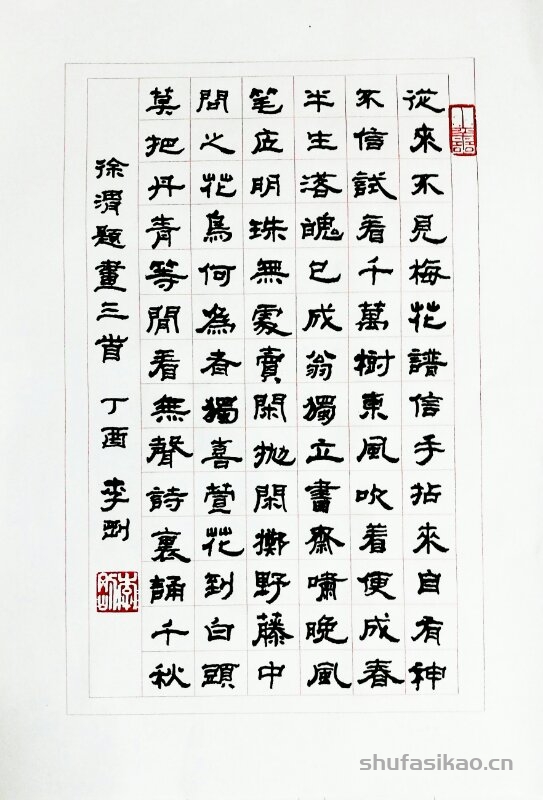 從來不見梅花譜信手拈來自有神
不信試看千萬樹東風吹着便成春
半生落魄已成翁獨立書齋嘯晚風
笔底明珠無處賣閑拋閑擲野藤中
問之花鳥何為者獨喜萱花到白頭
莫把丹青等閒看無聲詩裏誦千秋
徐渭題畫三首 丁酉 李
shufasikao.cn